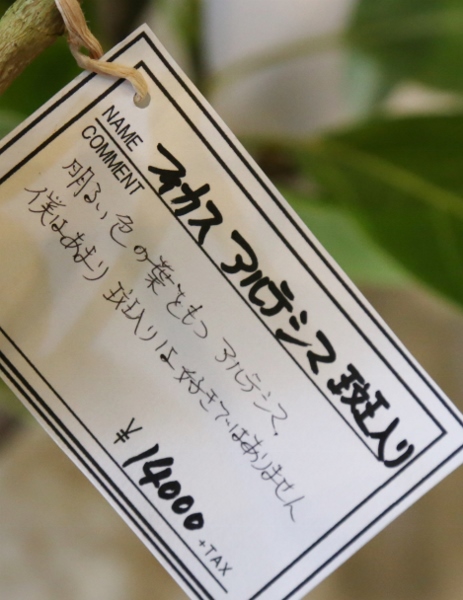 NAME フィカス アルテシマ 斑入り
COMMENT
明るい色の葉をもつ アルテシマ。
僕はあまり 斑入りは好きではありません
¥14000 +TAX